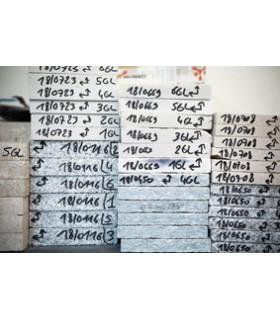 18/0723 6GL
18/0723 5GL
18/0723 4GL
18/0723 3GL
18/0723 2GL
18/0723 1GL
18/0116/2
18/0116/4
18/0116/6
18/0116/1
18/0116/5
18/0116/3
5GL
18/0669 6GL
18/0669 5GL
18/0669 4GL
18/0669 3GL
2GL
18/0669 1GL
18/0650 4GL
18/0708
18/0708
18/0708
18/0708
18/0708
18/0650
18/0650
18/0650
18/0650